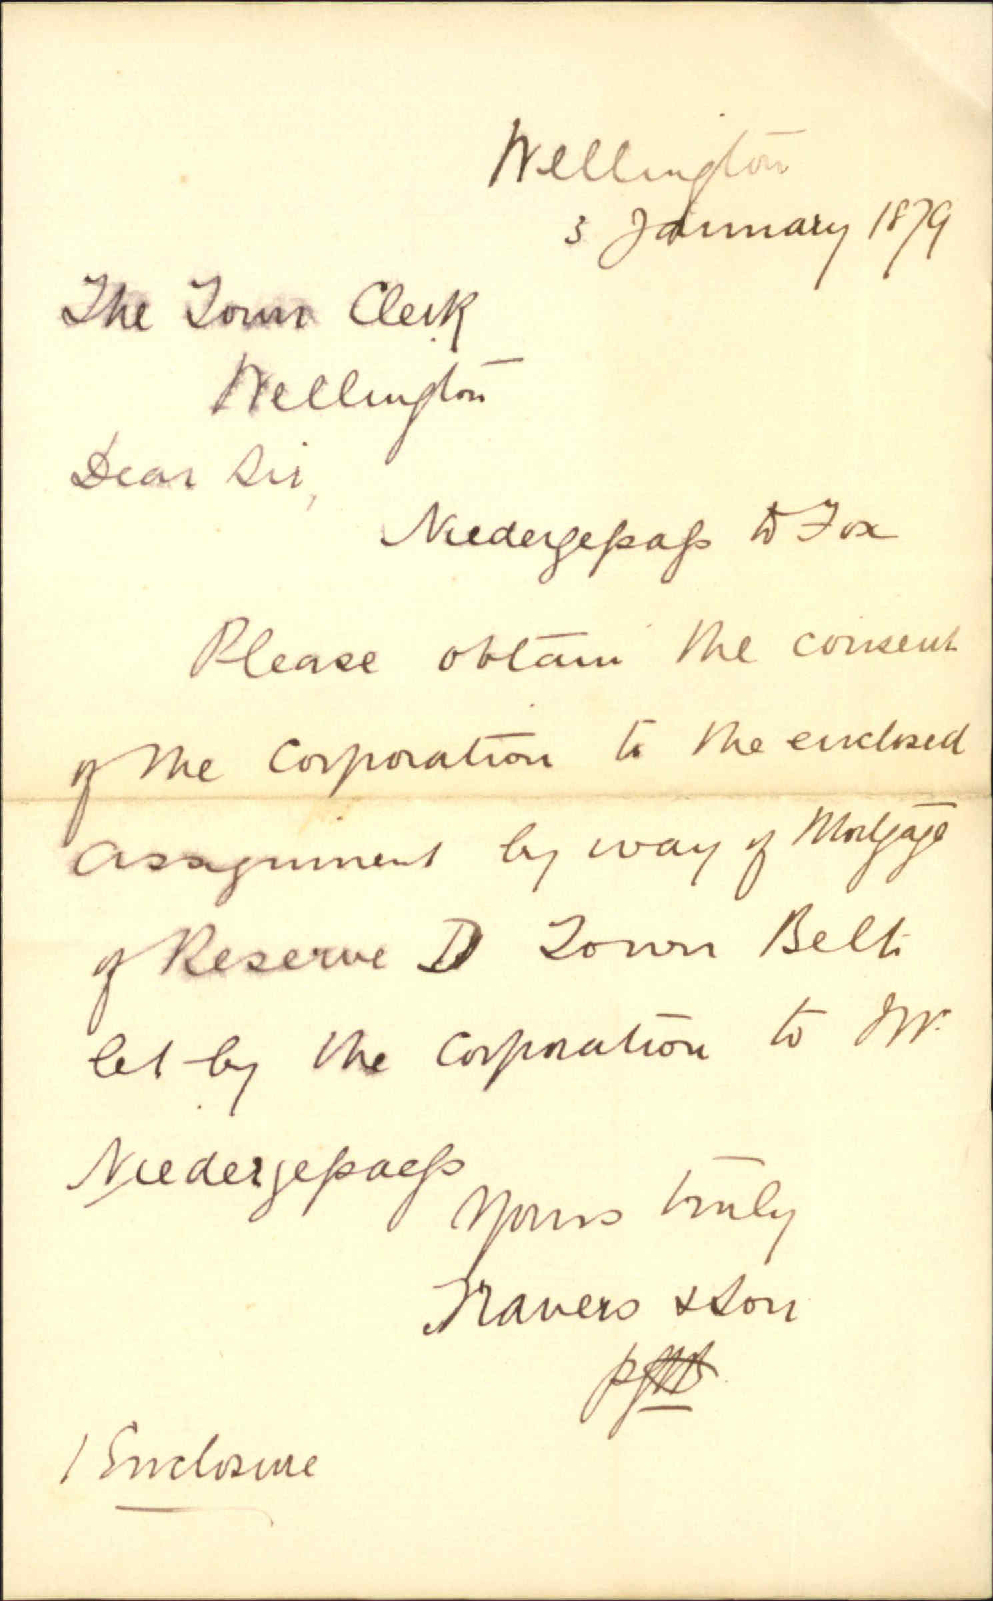 Wellington
3 January 1879
The Town Clerk
Wellington
Dear Sir,
Niedergessass to Fox
Please obtain the consent
of the Corporation to the enclosed
assignment by way of Mortgage
of Reserve D Town Belt
let by the Corporation to Mr.
Niedergesaess
Yours truly
Travers & Son
1 Enclosure